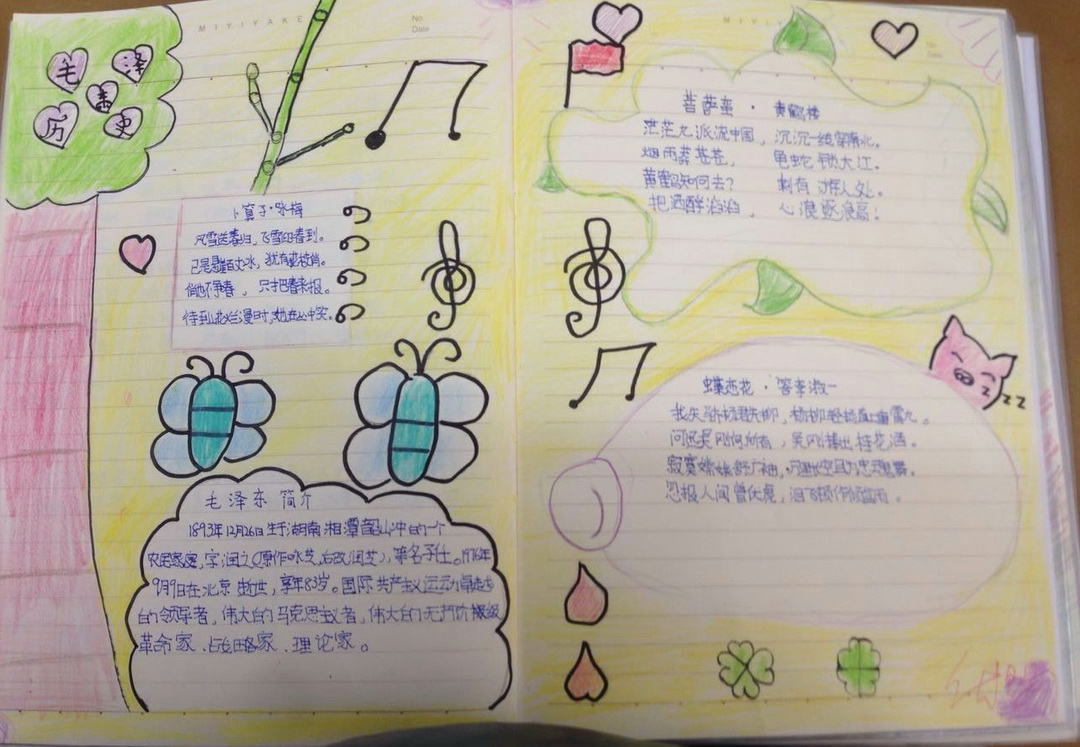 毛泽东
历史
MIYIYAKE
No.
Date
卜算子·咏梅
风雪送春归，飞雪迎春到。
已是悬崖百丈冰，犹有花枝俏。
俏也不争春，只把春来报。
待到山花烂漫时，她在丛中笑。
毛泽东简介
1893年12月26日生于湖南湘潭韶山冲的一个
农民家庭，字润之(原作咏芝，后改润芝)，笔名子任。1976年
9月9日在北京逝世，享年83岁。国际共产主义运动
的领导者，伟大的马克思主义者，伟大的无产阶级
革命家、战略家、理论家。
MIYIY
菩萨蛮·黄鹤楼
茫茫九派流中国，沉沉一线穿南北。
烟雨莽苍苍，龟蛇锁大江。
黄鹤知何去？剩有游人处。
把酒酹滔滔，心潮逐浪高！
蝶恋花·答李淑一
我失骄杨君失柳，杨柳轻扬直上重霄九。
问讯吴刚何所有，吴刚捧出桂花酒。
寂寞嫦娥舒广袖，万里长空且为忠魂舞。
忽报人间曾伏虎，泪飞顿作倾盆雨。
zzz